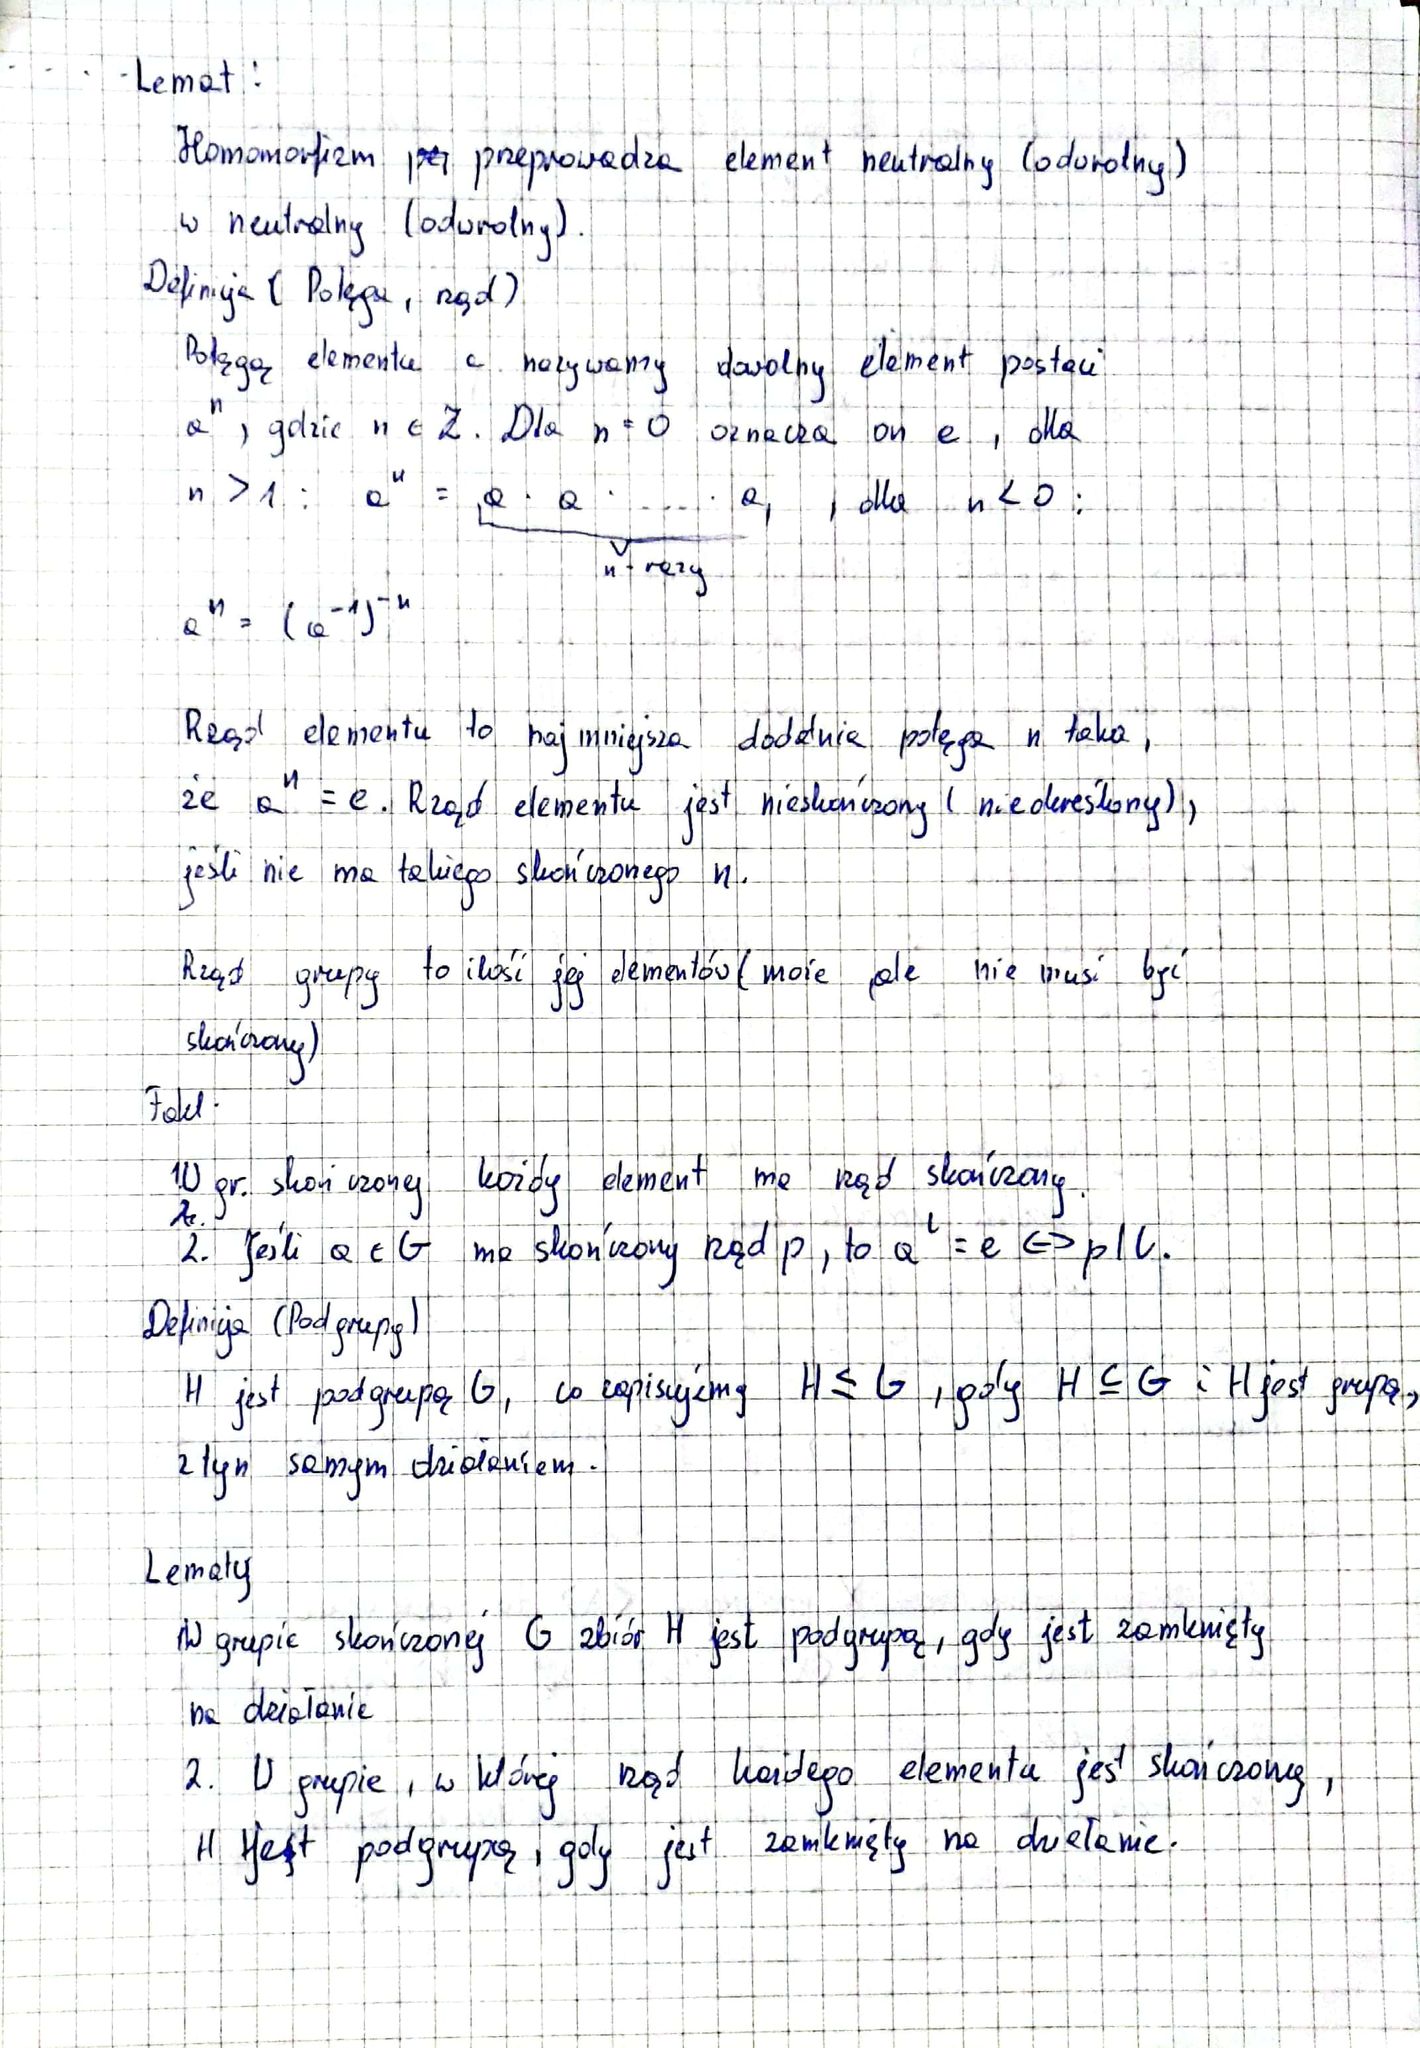 Lemat:
Homomorfizm przeprowadza element neutralny (odwrotny)
w neutralny (odwrotny).
Definicja (Potęga, rząd)
Potęgą elementu a nazywamy dowolny element postaci
aⁿ, gdzie n ∈ Z. Dla n = 0 oznacza on e, dla
n > 1: aⁿ = a · a · .... · a, , dla n < 0:
n - razy
aⁿ = (a⁻¹)⁻ⁿ
Rząd elementu to najmniejsza dodatnia potęga n taka,
że aⁿ = e. Rząd elementu jest nieskończony (nieokreślony),
jeśli nie ma takiego skończonego n.
Rząd grupy to ilość jej elementów (może ale nie musi być
skończony)
Fakt.
1W gr. skończonej każdy element ma rząd skończony.
2. Jeśli a ∈ G ma skończony rząd p, to aˡ = e <=> p|l.
Definicja (Podgrupy)
H jest podgrupą G, co zapisujemy H ≤ G, gdy H ⊆ G i H jest grupą,
z tym samym działaniem.
Lematy
1W grupie skończonej G zbiór H jest podgrupą, gdy jest zamknięty
na działanie
2. W grupie, w której rząd każdego elementu jest skończony,
H jest podgrupą, gdy jest zamknięty na działanie.